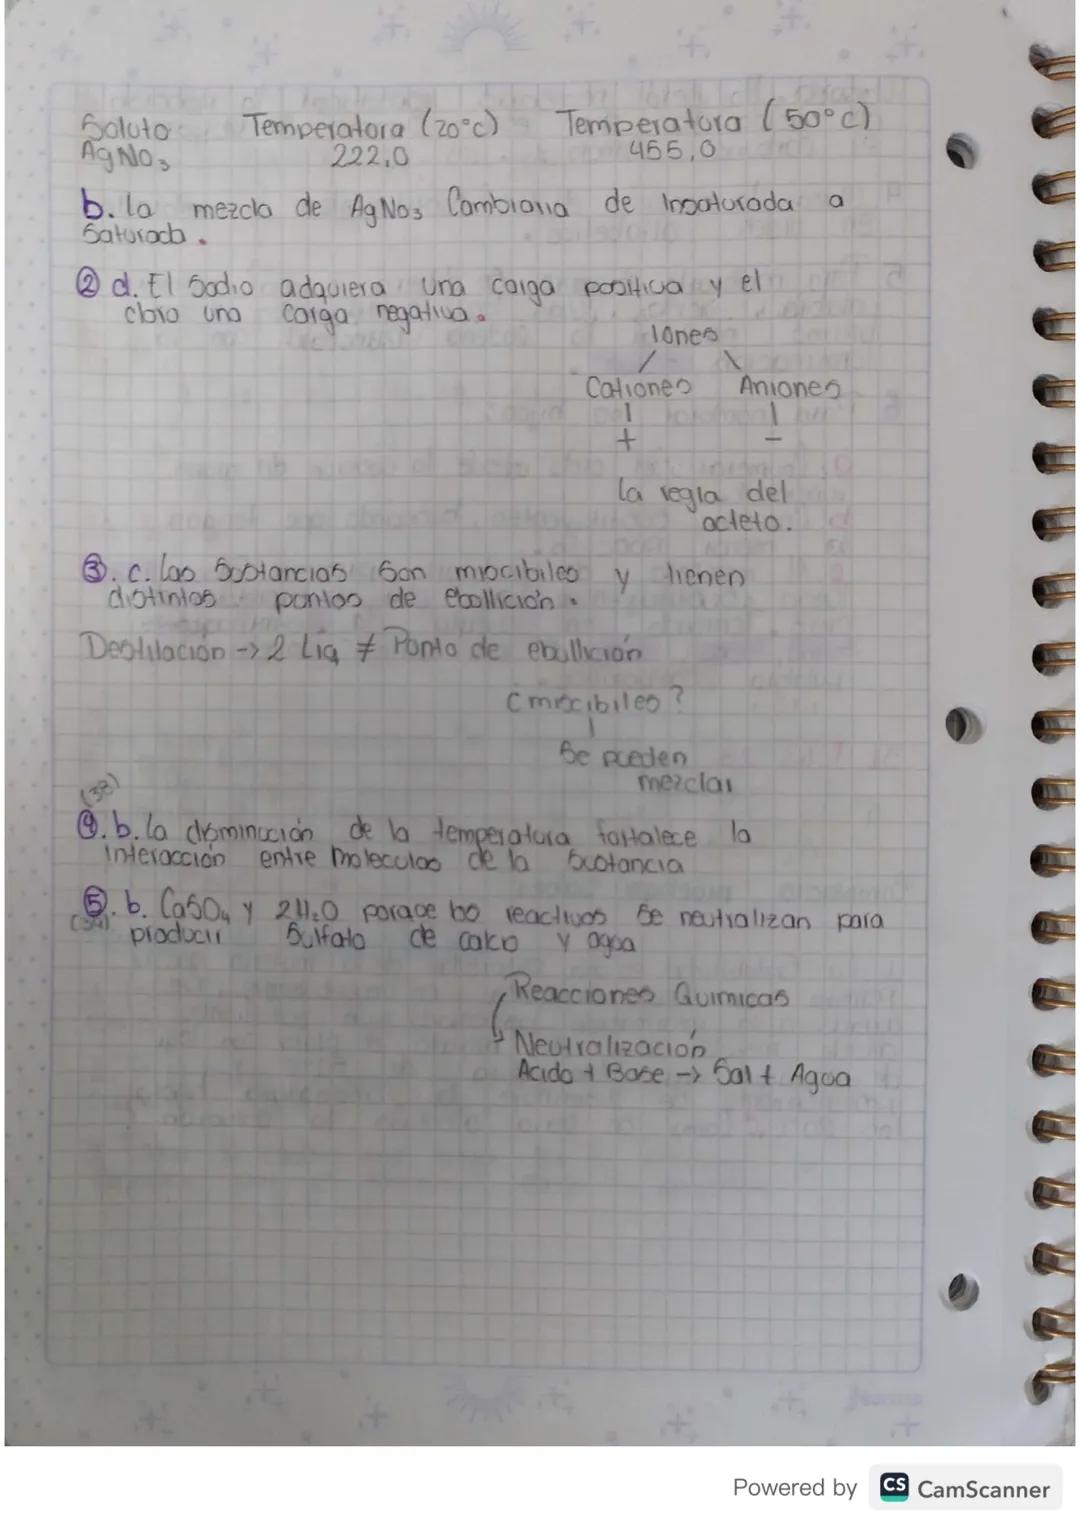 Soluto Temperatura (20°c) Temperatura (50°c)
AgNO₃ 222,0 455,0
b. la mezcla de AgNO₃ Cambiaria de Insaturada a
Saturada.
② d. El Sodio adquiera una carga positiva y el
cloro una carga negativa.
Iones
Cationes Aniones
+ -
La regla del
octeto.
③. c. las Sustancias Son miscibiles y tienen
distintos puntos de ebollición.
Destilación -> 2 Liq ≠ Punto de ebullición
¿miscibiles?
Se pueden
mezclar
(38)
④. b. la disminución de la temperatura fortalece la
interacción entre moleculas de la sustancia
⑤. b. CaSO₄ y 2H₂O porque los reactivos Se neutralizan para
(39). producir Sulfato de calcio y agua
Reacciones Quimicas
Neutralización
Acido + Base -> Sal + Agua
Powered by CS CamScanner